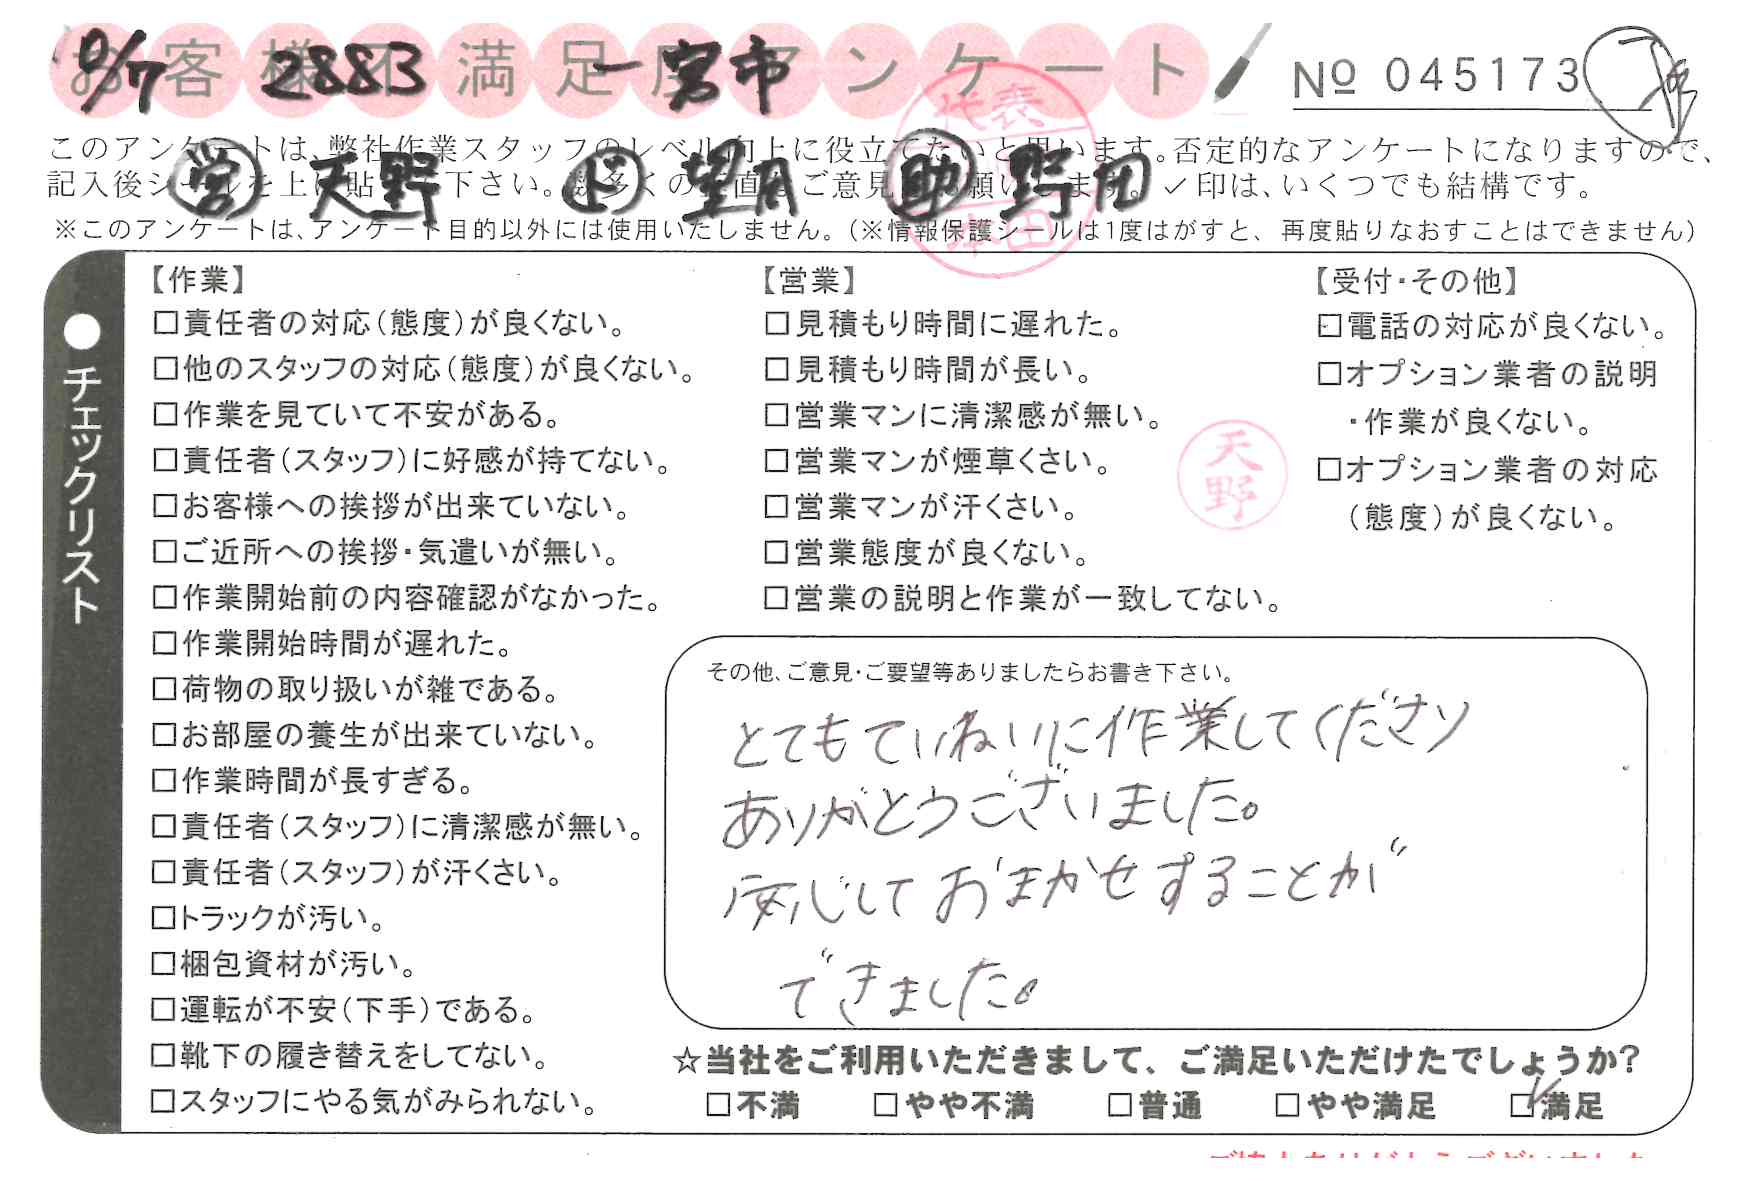 お客様不満足度アンケート
10/7 2883 一宮市
№ 045173
このアンケートは、弊社作業スタッフのレベル向上に役立てたいと思います。否定的なアンケートになりますので、
記入後シールを上に貼 下さい。数多くの正直なご意見 お願いします。✓印は、いくつでも結構です。
営 天野 ド 望月 助 野田
※このアンケートは、アンケート目的以外には使用いたしません。(※情報保護シールは1度はがすと、再度貼りなおすことはできません)
代表
本田
●チェックリスト
【作業】
□責任者の対応(態度)が良くない。
□他のスタッフの対応(態度)が良くない。
□作業を見ていて不安がある。
□責任者(スタッフ)に好感が持てない。
□お客様への挨拶が出来ていない。
□ご近所への挨拶・気遣いが無い。
□作業開始前の内容確認がなかった。
□作業開始時間が遅れた。
□荷物の取り扱いが雑である。
□お部屋の養生が出来ていない。
□作業時間が長すぎる。
□責任者(スタッフ)に清潔感が無い。
□責任者(スタッフ)が汗くさい。
□トラックが汚い。
□梱包資材が汚い。
□運転が不安(下手)である。
□靴下の履き替えをしてない。
□スタッフにやる気がみられない。
【営業】
□見積もり時間に遅れた。
□見積もり時間が長い。
□営業マンに清潔感が無い。
□営業マンが煙草くさい。
□営業マンが汗くさい。
□営業態度が良くない。
□営業の説明と作業が一致してない。
天野
【受付・その他】
□電話の対応が良くない。
□オプション業者の説明
・作業が良くない。
□オプション業者の対応
(態度)が良くない。
その他、ご意見・ご要望等ありましたらお書き下さい。
とてもていねいに作業してくださり
ありがとうございました。
安心しておまかせすることが
できました。
☆当社をご利用いただきまして、ご満足いただけたでしょうか?
□不満 □やや不満 □普通 □やや満足 ☑満足